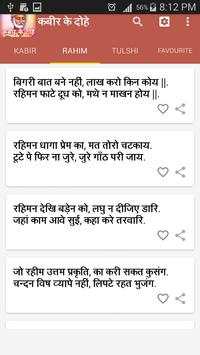 8:12 PM
कबीर के दोहे
KABIR RAHIM TULSHI FAVOURITE
बिगरी बात बने नही, लाख करो किन कोय ||.
रहिमन फाटे दूध को, मथे न माखन होय ||.
रहिमन धागा प्रेम का, मत तोरो चटकाय.
टूटे पे फिर ना जुरे, जुरे गाँठ परी जाय.
रहिमन देखि बडेन को, लघु न दीजिए डारि.
जहां काम आवे सुई, कहा करे तरवारि.
जो रहीम उत्तम प्रकृति, का करी सकत कुसंग.
चन्दन विष व्यापे नही, लिपटे रहत भुजंग.